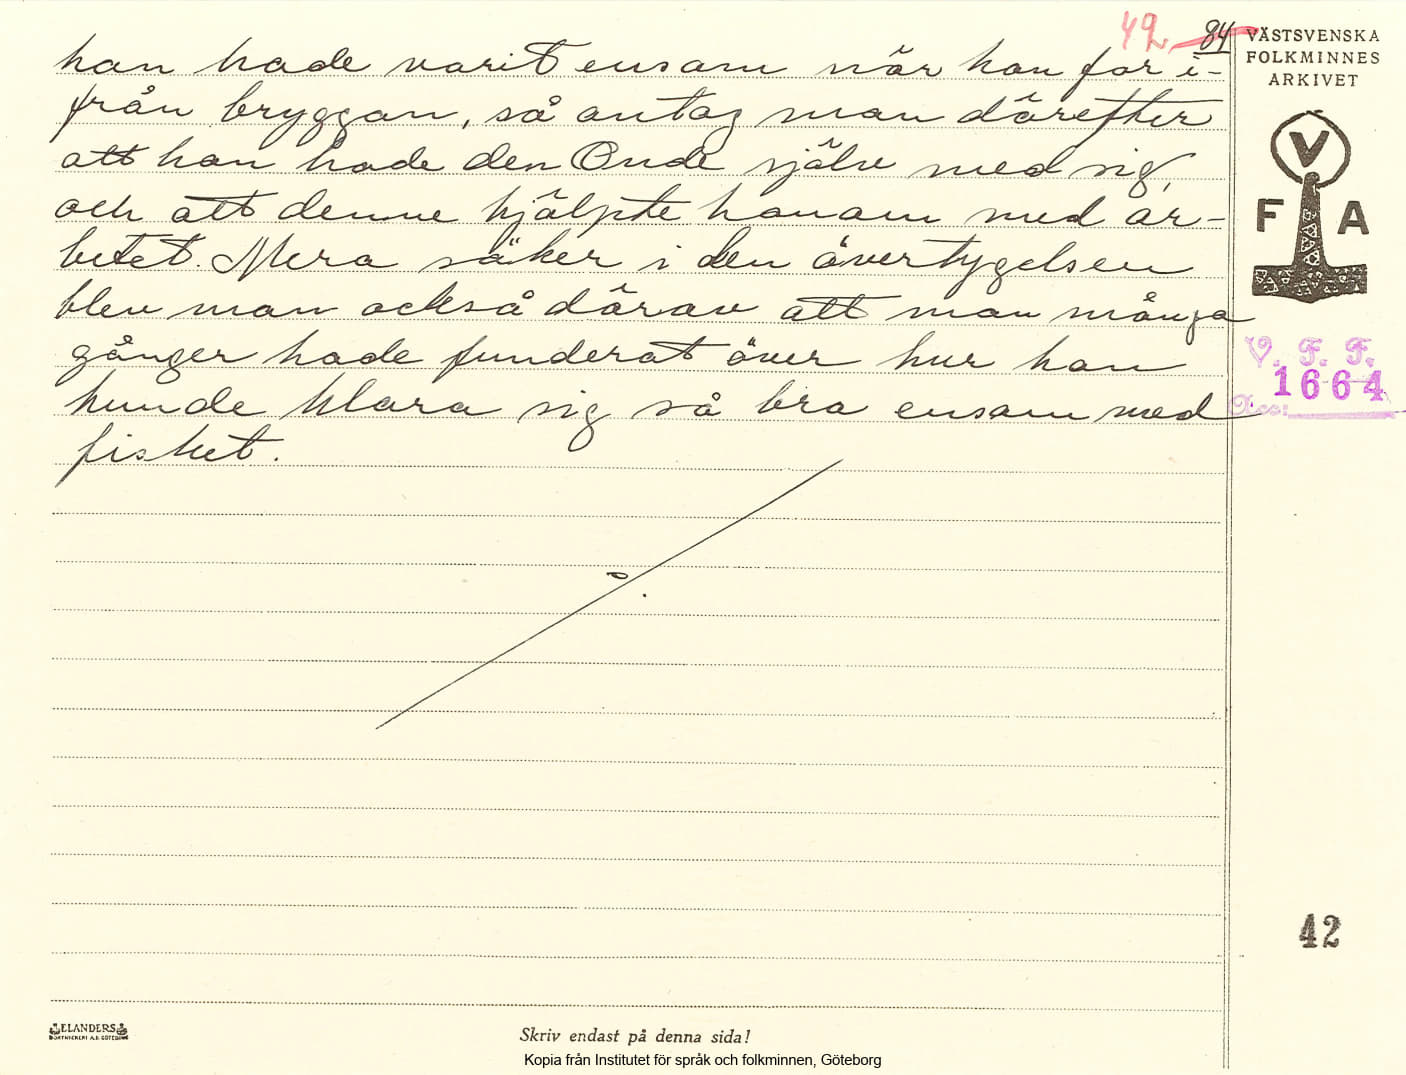 49. 84
han hade varit ensam när han for i-
från bryggan, så antog man därefter
att han hade den Onde själv med sig,
och att denne hjälpte honom med ar-
betet. Mera säker i den övertygelsen
blev man också därav att man många
gånger hade funderat över hur han
kunde klara sig så bra ensam med
fisket.
VÄSTSVENSKA
FOLKMINNES
ARKIVET
V
F A
V. F. F.
1664
42
ELANDERS
BOKTRYCKERI A.B. GÖTEBORG
Skriv endast på denna sida!
Kopia från Institutet för språk och folkminnen, Göteborg